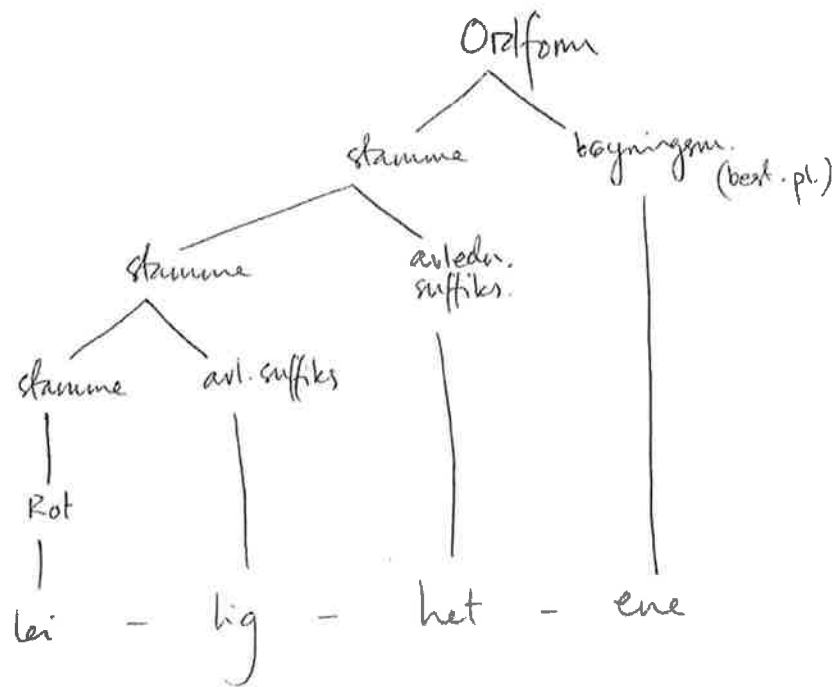 Ordform
stamme bøyningsm.
(best. pl.)
stamme avledn.
suffiks.
stamme avl. suffiks
Rot
lei - lig - het - ene